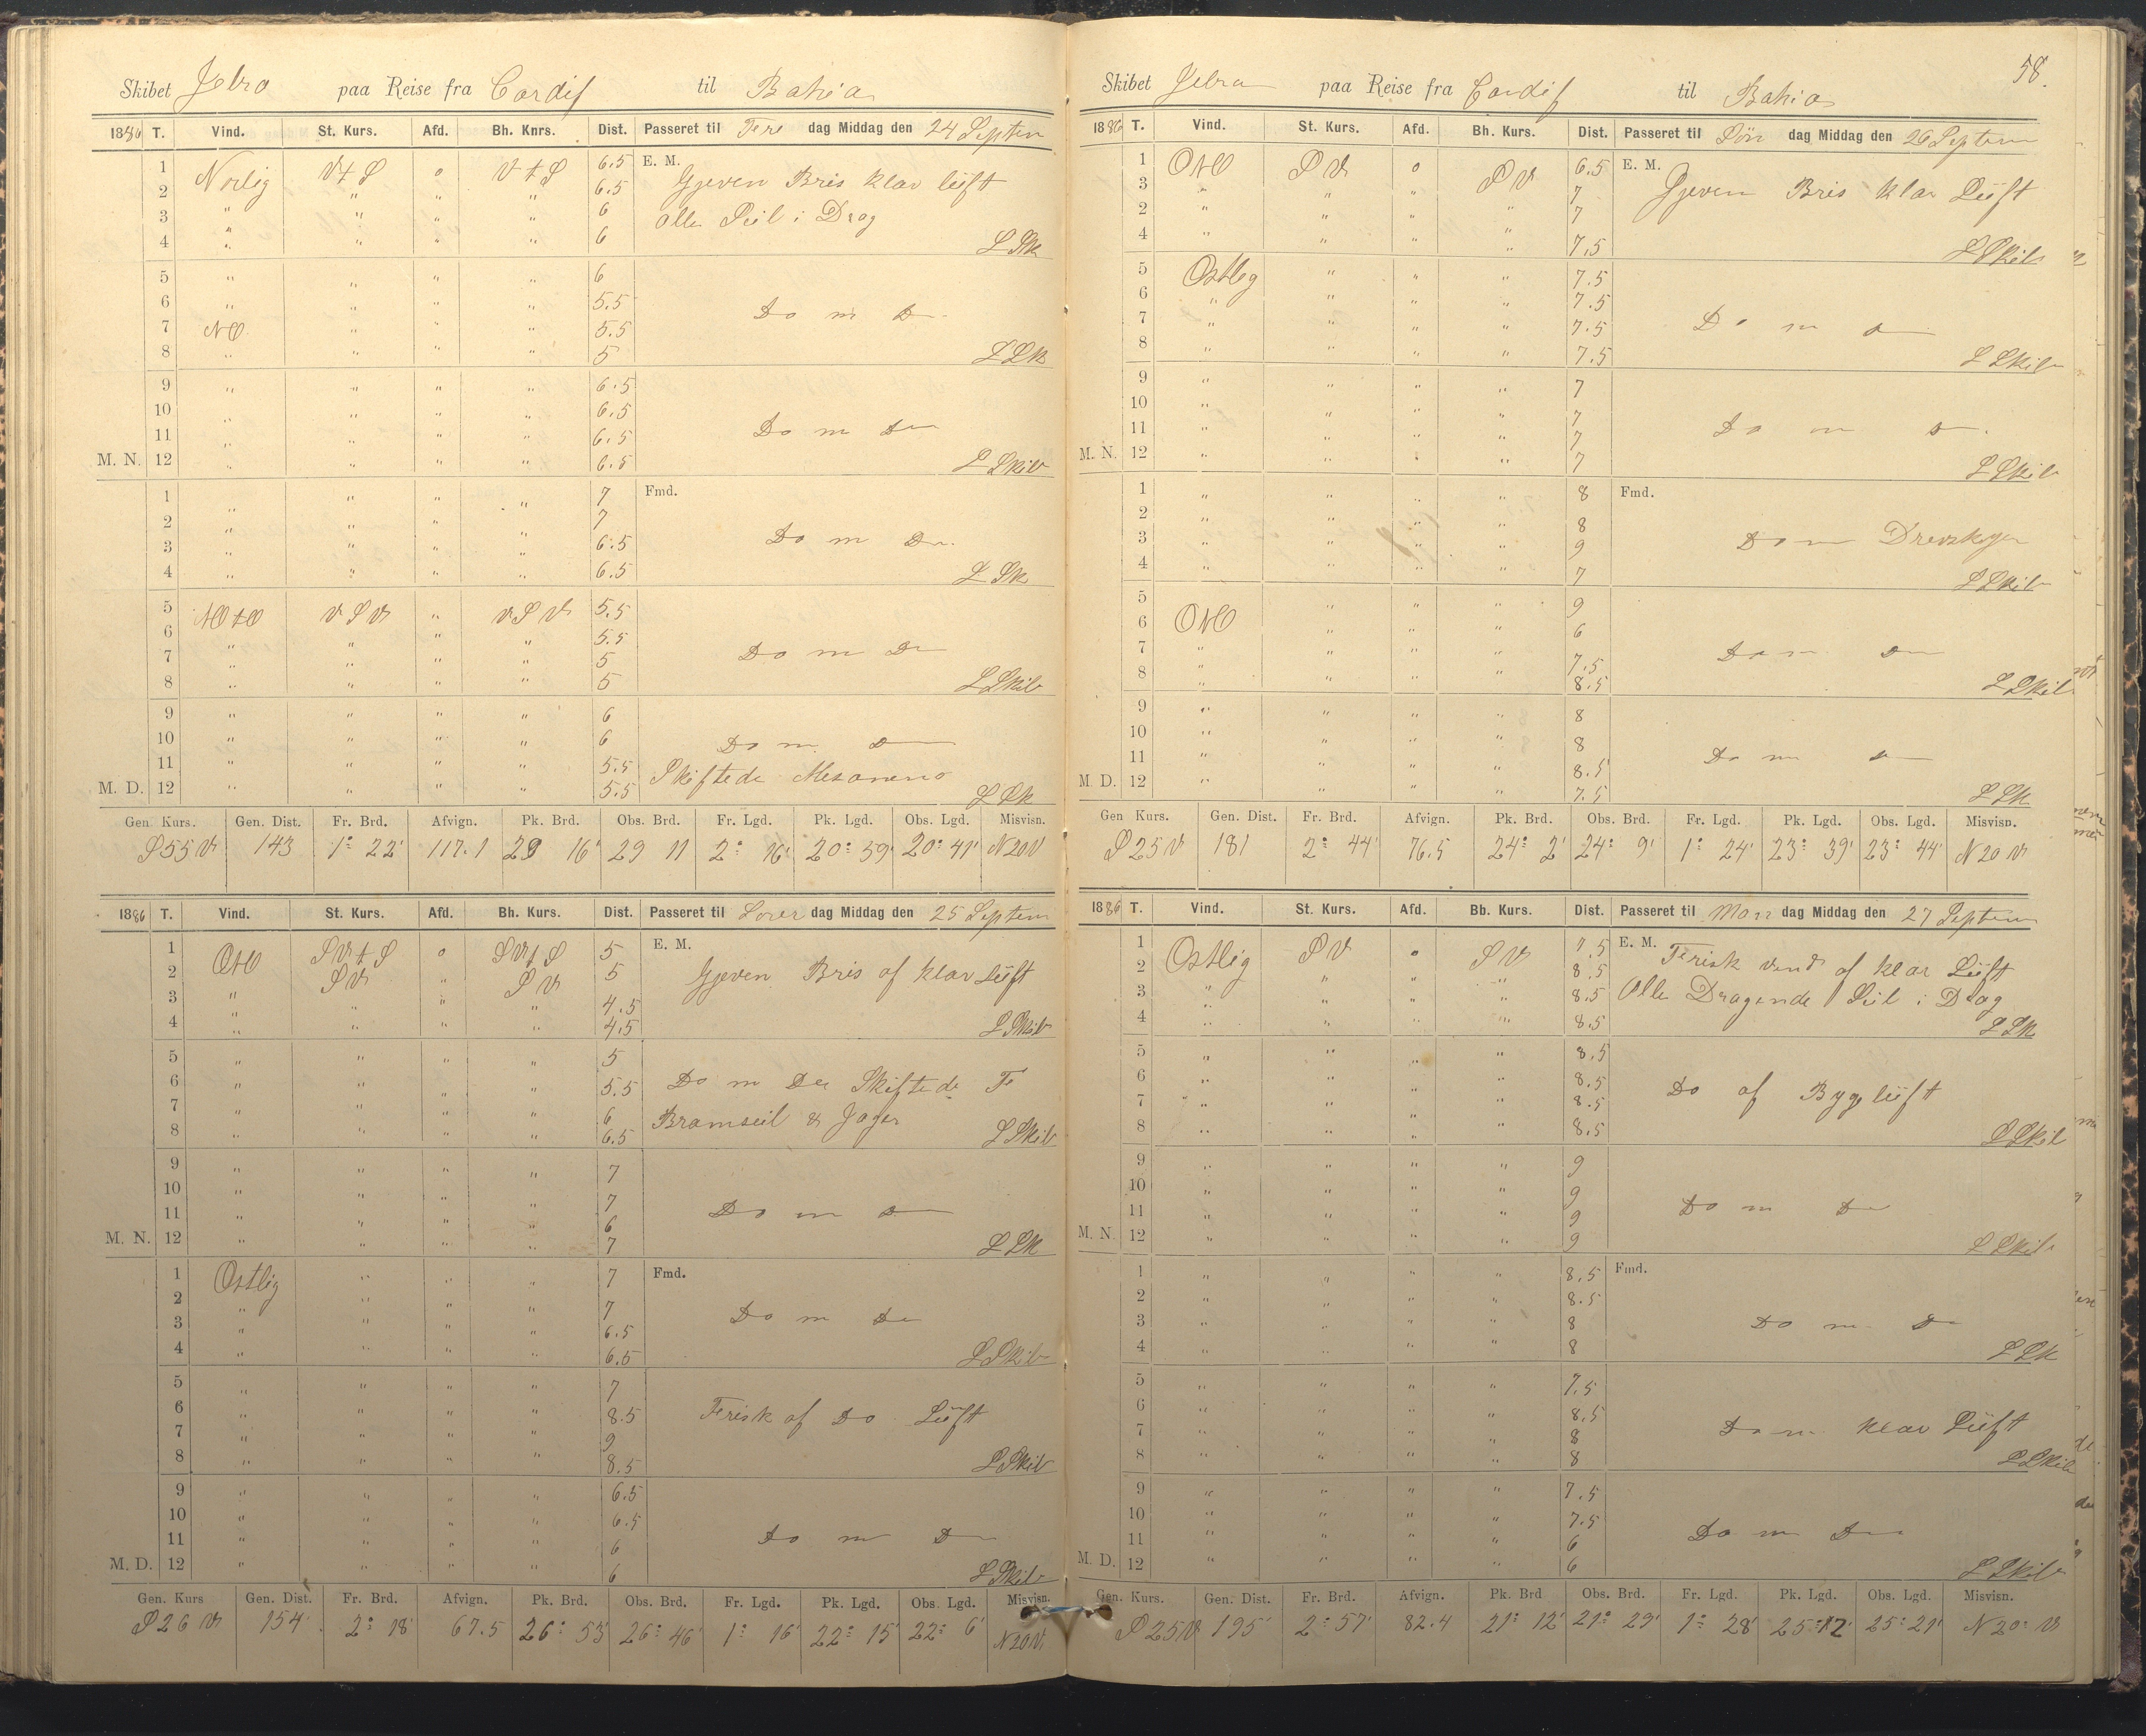 58.
Skibet Jebra paa Reise fra Cardif til Bahia
1886 T. Vind. St. Kurs. Afd. Bh. Knrs. Dist. Passeret til Fre dag Middag den 24 Septem
E. M.
1 Norlig V t S 0 V t S 6.5 Gjeven Bris klar lüft
2 " " " " 6.5
3 " " " " 6 alle Seil i Drag
4 " " " " 6 L Sk
5 " " " " 6
6 " " " " 5.5 Do m Do
7 NO " " " 5.5
8 " " " " 5 L Sk
9 " " " " 6.5
10 " " " " 6.5
11 " " " " 6.5 Do m Do
M. N. 12 " " " " 6.5 L Skib
Fmd.
1 " " " " 7
2 " " " " 7
3 " " " " 6.5 Do m Do
4 " " " " 6.5 L Sk
5 NO t O V S V " V S V 5.5
6 " " " " 5.5
7 " " " " 5 Do m Do
8 " " " " 5 L Skib
9 " " " " 6
10 " " " " 6 Do m Do
11 " " " " 5.5 Skiftede
M. D. 12 " " " " 5.5 L Sk
Gen Kurs. Gen. Dist. Fr. Brd. Afvign. Pk. Brd. Obs. Brd. Fr. Lgd. Pk. Lgd. Obs. Lgd. Misvisn.
S 55 V 143 1° 22' 117.1 29 16' 29 11 2° 16' 20° 59' 20° 41' N 20 V
1886 T. Vind. St. Kurs. Afd. Bh. Kurs. Dist. Passeret til Lører dag Middag den 25 Septem
E. M.
1 OtO SV t S 0 SV t S 5
2 SV " SV 5 Gjeven Bris af klar lüft
3 " " " " 4.5
4 " " " " 4.5 L Skib
5 " " " " 5
6 " " " " 5.5 Do m Do Skiftede F
7 " " " " 6 Bramseil & Jager
8 " " " " 6.5 L Skib
9 " " " " 7
10 " " " " 7
11 " " " " 6 Do m Do
M. N. 12 " " " " 7 L Sk
Fmd.
1 Ostlig " " " 7
2 " " " " 7 Do m Do
3 " " " " 6.5
4 " " " " 6.5 L Skib
5 " " " " 7
6 " " " " 8.5 Frisk af Do Lüft
7 " " " " 9
8 " " " " 8.5 L Skib
9 " " " " 6.5
10 " " " " 6.5
11 " " " " 6 Do m Do
M. D. 12 " " " " 6 L Skib
Gen. Kurs Gen. Dist. Fr. Brd. Afvign. Pk. Brd. Obs. Brd. Fr. Lgd. Pk. Lgd. Obs. Lgd. Misvisn.
S 26 V 154 2° 18' 67.5 26° 53' 26° 46' 1° 16' 22° 15' 22° 6' N 20 V
Skibet Jebra paa Reise fra Cardif til Bahia
1886 T. Vind. St. Kurs. Afd. Bh. Kurs. Dist. Passeret til Søn dag Middag den 26 Septem
E. M.
1 OtO S V 0 S V 6.5
3 " " " 7 Gjeven Bris klar Lüft
2 " " " " 7
4 " " " " 7.5 L Skib
5 Ostlig " " " 7.5
6 " " " " 7.5
7 " " " " 7.5 Do m Do
8 " " " " 7.5 L Skib
9 " " " " 7
10 " " " " 7
11 " " " " 7 Do m Do
M. N. 12 " " " " 7 L Skib
Fmd.
1 " " " " 8
2 " " " " 8
3 " " " " 9 Do m Drevskyer
4 " " " " 7 L Skib
5 " " " 9
6 OtO " " " 6
7 " " " " 7.5 Do m Do
8 " " " " 8.5 L Skib
9 " " " " 8
10 " " " " 8
11 " " " " 8.5 Do m Do
M. D. 12 " " " " 7.5 L Sk
Gen Kurs. Gen. Dist. Fr. Brd. Afvign. Pk. Brd. Obs. Brd. Fr. Lgd. Pk. Lgd. Obs. Lgd. Misvisn.
S 25 V 181 2° 44' 76.5 24° 2' 24° 9' 1° 24' 23° 39' 23° 44' N 20 V
1886 T. Vind. St. Kurs. Afd. Bb. Kurs. Dist. Passeret til Man dag Middag den 27 Septem
E. M.
1 Ostlig S V 0 S V 7.5 Frisk vend af klar Lüft
2 " " " 8.5
3 " " " " 8.5 Alle Dragende Seil i Drag
4 " " " " 8.5 L Sk
5 " " " " 8.5
6 " " " " 8.5 Do af Byge lüft
7 " " " " 8.5
8 " " " " 8.5 L Skib
9 " " " " 9
10 " " " " 9
11 " " " " 9 Do m Do
M. N. 12 " " " " 9 L Skib
Fmd.
1 " " " " 8.5
2 " " " " 8.5
3 " " " " 8 Do m Do
4 " " " " 8 L Sk
5 " " " " 7.5
6 " " " " 8.5
7 " " " " 8 Do m klar Lüft
8 " " " " 8 L Skib
9 " " " " 7.5
10 " " " " 7.5
11 " " " " 6 Do m Do
M. D. 12 " " " " 6 L Skib
Gen. Kurs. Gen. Dist. Fr. Brd. Afvign. Pk. Brd Obs. Brd. Fr. Lgd. Pk. Lgd. Obs. Lgd. Misvisn.
S 25 V 195 2° 57' 82.4 21° 12' 21° 29' 1° 28' 25° 12' 25° 21' N 20 V